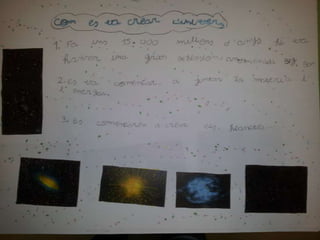 Com es va crear l'univers
1. Fa uns 15.000 milions d'anys hi va
haver una gran explosió anomenada Big Ban
2. es va començar a juntar la matèria i
l'energia.
3. Es començaren a crear els planetes